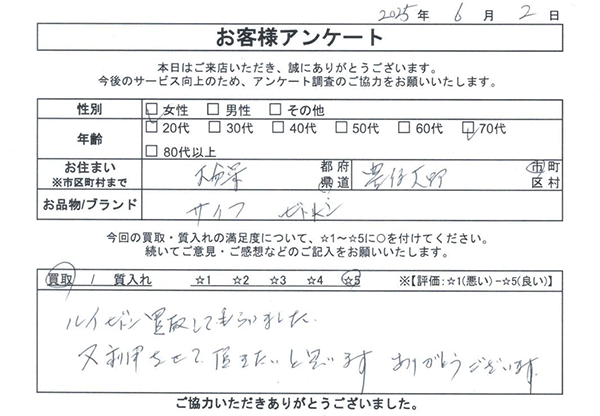 2025年 6月 2日
お客様アンケート
本日はご来店いただき、誠にありがとうございます。
今後のサービス向上のため、アンケート調査のご協力をお願いいたします。
性別 □女性 □男性 □その他
年齢 □20代 □30代 □40代 □50代 □60代 □70代
□80代以上
お住まい
※市区町村まで 大分県 都府県道 豊後大野 市町区村
お品物/ブランド サイフ ビトン
今回の買取・質入れの満足度について、☆1～☆5に○を付けてください。
続いてご意見・ご感想などのご記入をお願いいたします。
買取 / 質入れ ☆1 ☆2 ☆3 ☆4 ☆5 ※【評価:☆1(悪い)−☆5(良い)】
ルイビトン買取してもらいました。
又利用させて頂きたいと思います ありがとうございます。
ご協力いただきありがとうございました。